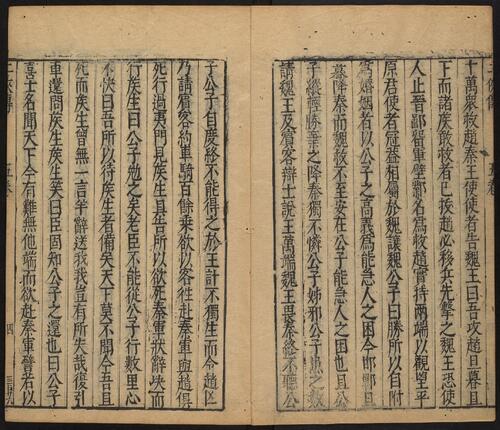 十萬衆救趙秦王使使者告魏王曰吾攻趙旦暮且
下而諸矦敢救者已拔趙必移兵先擊之魏王恐使
人止晉鄙留軍壁鄴名爲救趙實持兩端以觀望平
原君使者冠蓋相屬於魏讓魏公子曰勝所以自附
爲婚姻者以公子之高義爲能急人之困今邯鄲旦
暮降秦而魏救不至安在公子能急人之困也且公
子縱輕勝棄之降秦獨不憐公子姊邪公子患之數
請魏王及賓客辯士說王萬端魏王畏秦終不聽公
子公子自度終不能得之於王計不獨生而令趙亡
乃請賓客約車騎百餘乘欲以客徃赴秦軍與趙俱
死行過夷門見矦生具告所以欲死秦軍狀辭決而
行矦生曰公子勉之矣老臣不能從公子行數里心
不快曰吾所以待矦生者備矣天下莫不聞今吾且
死而矦生曾無一言半辭送我我豈有所失哉復引
車還問矦生矦生笑曰臣固知公子之還也曰公子
喜士名聞天下今有難無他端而欲赴秦軍譬若以
五卷
四